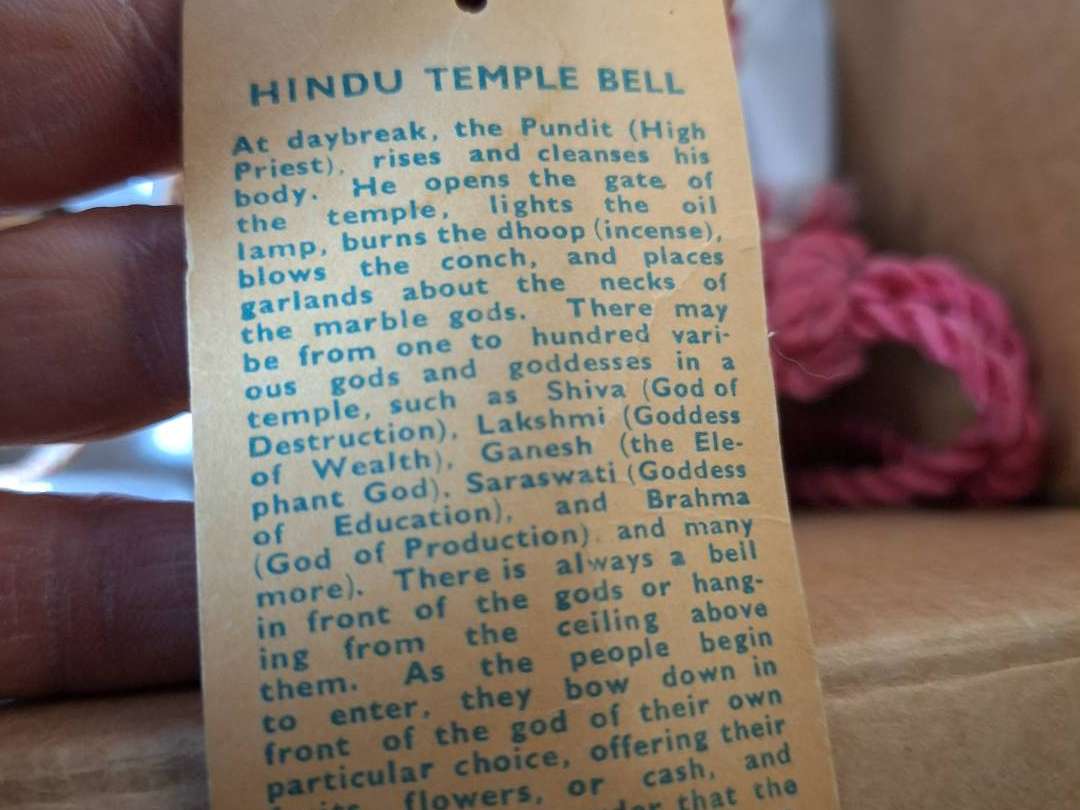 HINDU TEMPLE BELL
At daybreak, the Pundit (High
Priest), rises and cleanses his
body. He opens the gate of
the temple, lights the oil
lamp, burns the dhoop (incense),
blows the conch, and places
garlands about the necks of
the marble gods. There may
be from one to hundred vari-
ous gods and goddesses in a
temple, such as Shiva (God of
Destruction), Lakshmi (Goddess
of Wealth), Ganesh (the Ele-
phant God), Saraswati (Goddess
of Education), and Brahma
(God of Production) and many
more). There is always a bell
in front of the gods or hang-
ing from the ceiling above
them. As the people begin
to enter, they bow down in
front of the god of their own
particular choice, offering their
flowers, or cash, and
that the